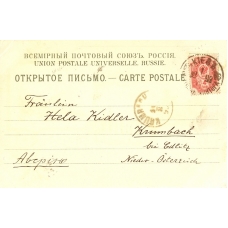 ВСЕМІРНЫЙ ПОЧТОВЫЙ СОЮЗЪ. РОССІЯ.
UNION POSTALE UNIVERSELLE. RUSSIE.
ОТКРЫТОЕ ПИСЬМО. — CARTE POSTALE
Fräulein
Hela Kidler
Krumbach
bei Edlitz
Австрія
Nieder-Österreich